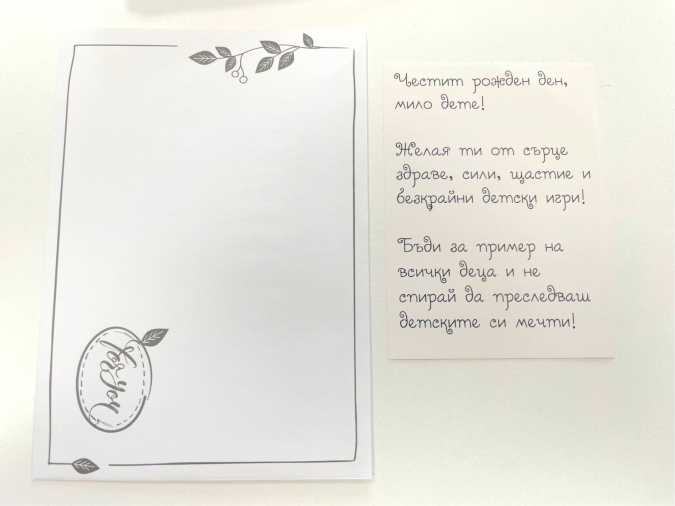 for you
Честит рожден ден,
мило дете!
Желая ти от сърце
здраве, сили, щастие и
безкрайни детски игри!
Бъди за пример на
всички деца и не
спирай да преследваш
детските си мечти!